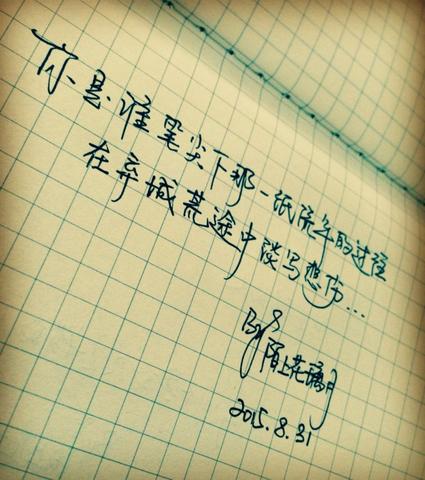 你是谁笔尖下那一纸流年的过程
在弃城荒途中谈写想伤...
By 陌上花璃月
2015.8.31